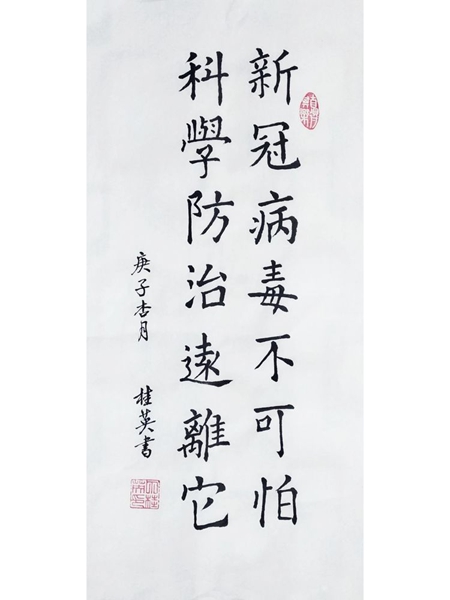 新冠病毒不可怕
科學防治遠離它
庚子杏月 桂英書